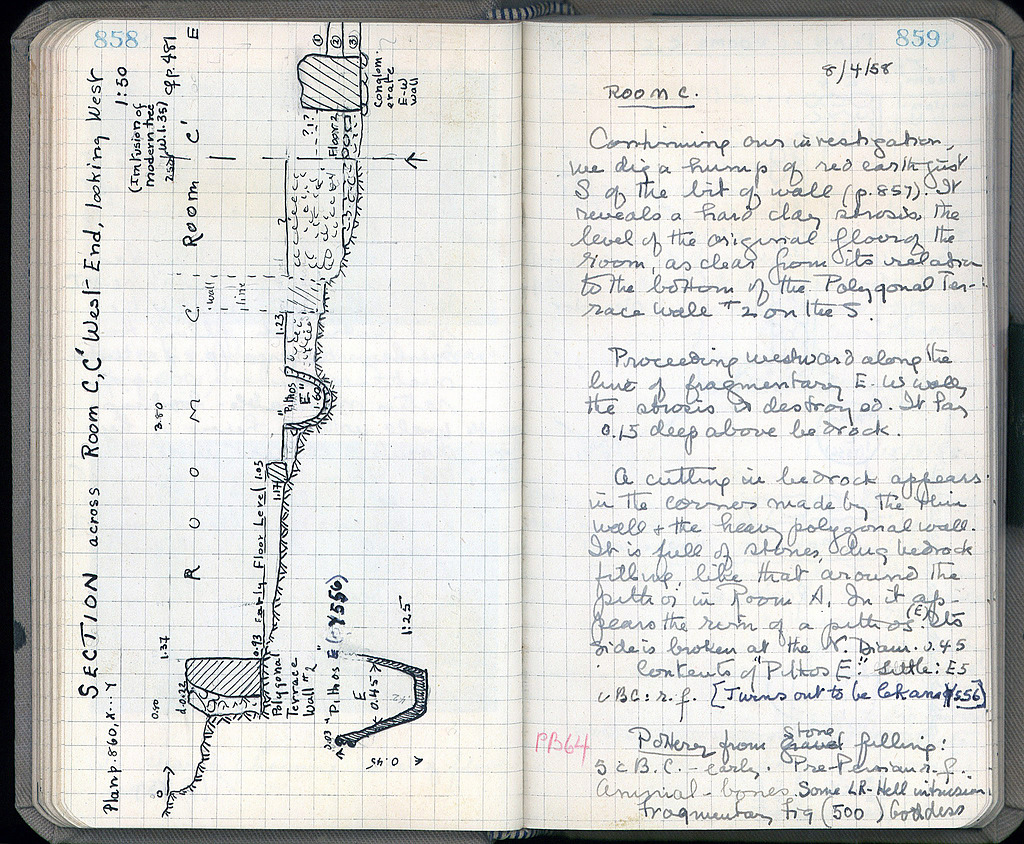 858
SECTION across Room C, C' West End, looking West
1:50
Plan p. 860, X...Y
(Intrusion of
modern tree
W. 1.35)
cf p. 481
E
ROOM C
Room C'
wall
line
3.80
1.37
0.50
0.93 Early Floor Level 1.05
1.17
1.23
"Pithos
E"
1.60
?
?1?
Floor 2
1
2
3
Conglom-
erate
E-W
wall
Polygonal
Terrace
Wall #2
"Pithos E" (Y556)
1:25
E
0.45
0.03
0.45
859
8/4/58
Room C.
Continuing our investigation,
we dig a hump of red earth just
S of the bit of wall (p. 857). It
reveals a hard clay strosis, the
level of the original floor of the
room, as clear from its relation
to the bottom of the Polygonal Ter-
race wall #2 on the S.
Proceeding westward along the
line of fragmentary E-W wall,
the strosis is destroyed. It lay
0.15 deep above bedrock.
A cutting in bedrock appears
in the corner made by the thin
wall + the heavy polygonal wall.
It is full of stones, dug bedrock
filling, like that around the
pithoi in Room A. In it ap-
pears the rim of a pithos (E). Its
side is broken at the N. Diam. 0.45
Contents of "Pithos E": Little: E5
c BC: r.f. [Turns out to be lekane Y556]
PB64
Pottery from Stone filling:
5 c B.C. - early. Pre-Persian r.f.
Animal-bones. Some LR-Hell intrusion
Fragmentary fig (500) Goddess